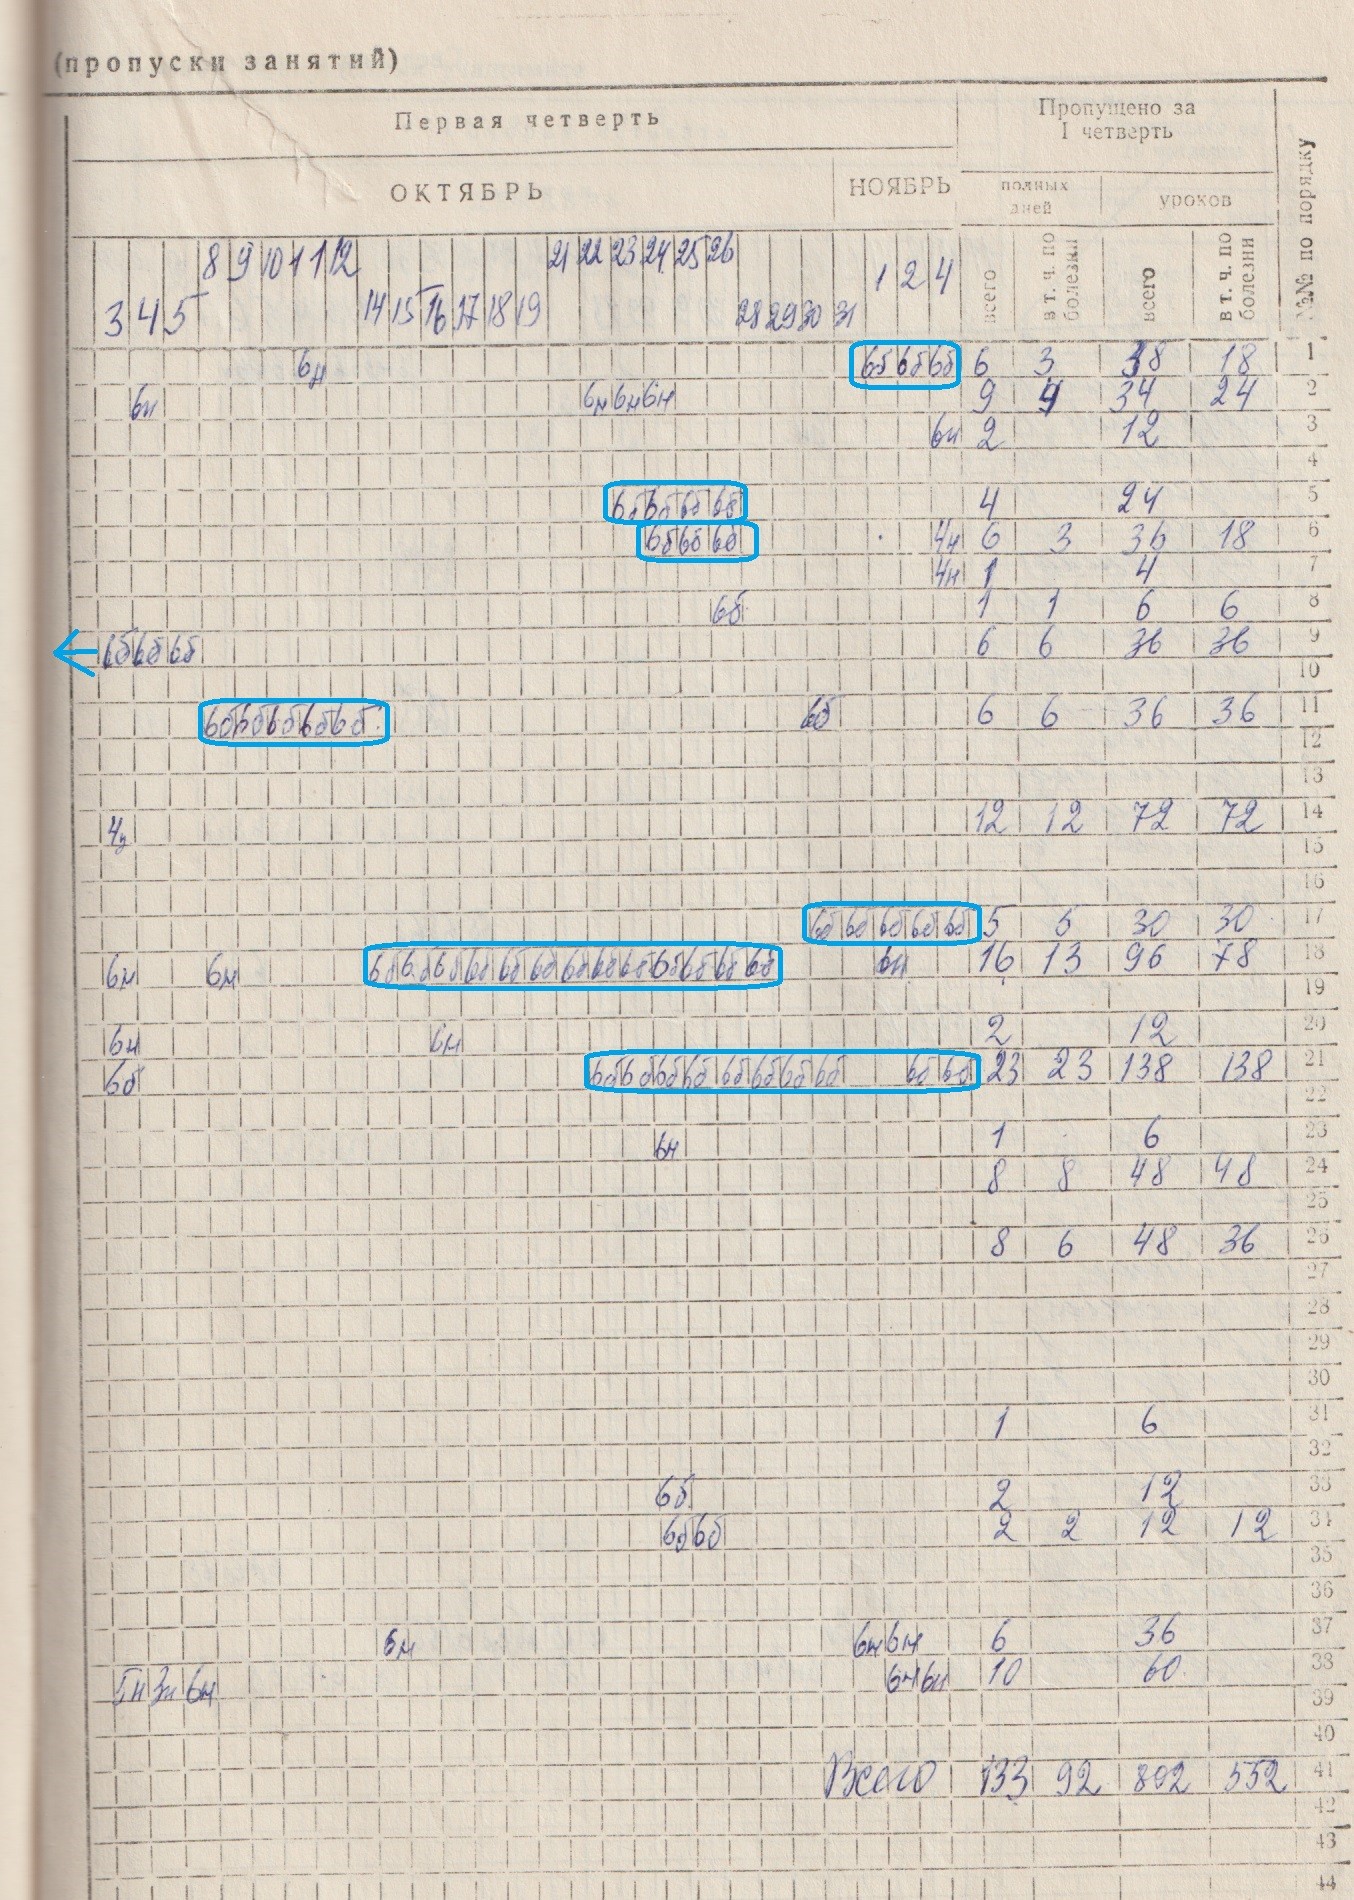 (пропуски занятий)
Первая четверть
Пропущено за
I четверть
№№ по порядку
ОКТЯБРЬ
НОЯБРЬ
полных
дней
уроков
всего
в т. ч. по
болезни
всего
в т. ч. по
болезни
8 9 10 11 12
21 22 23 24 25 26
1 2 4
3 4 5
14 15 16 17 18 19
28 29 30 31
6н 6б 6б 6б 6 3 38 18 1
6н 6н 6н 6н 9 4 34 24 2
6н 2 12 3
4
6б 6б 6б 6б 4 24 5
6б 6б 6б 4н 6 3 36 18 6
4н 1 4 7
6б 1 1 6 6 8
6б 6б 6б 6 6 36 36 9
10
6б 6б 6б 6б 6б 6б 6 6 36 36 11
12
13
4н 12 12 72 72 14
15
16
6б 6б 6б 6б 6б 5 5 30 30 17
6н 6н 6б 6б 6б 6б 6б 6б 6б 6б 6б 6б 6б 6б 6б 6н 16 13 96 78 18
19
6н 6н 2 12 20
6б 6б 6б 6б 6б 6б 6б 6б 6б 6б 6б 23 23 138 138 21
22
6н 1 6 23
8 8 48 48 24
25
8 6 48 36 26
27
28
29
30
1 6 31
32
6б 2 12 33
6б 6б 2 2 12 12 34
35
36
6н 6н 6н 6 36 37
5н 3н 6н 6н 6н 10 60 38
39
40
Всего 133 92 802 552 41
42
43
44